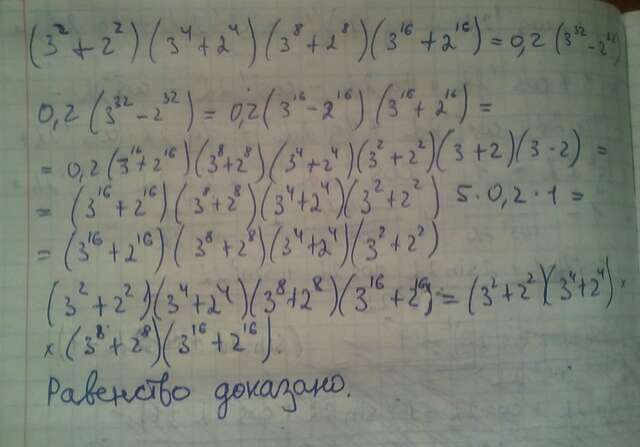 (3² + 2²)(3⁴ + 2⁴)(3⁸ + 2⁸)(3¹⁶ + 2¹⁶) = 0,2(3³² - 2³²)
0,2(3³² - 2³²) = 0,2(3¹⁶ - 2¹⁶)(3¹⁶ + 2¹⁶) =
= 0,2(3¹⁶ + 2¹⁶)(3⁸ + 2⁸)(3⁴ + 2⁴)(3² + 2²)(3 + 2)(3 - 2) =
= (3¹⁶ + 2¹⁶)(3⁸ + 2⁸)(3⁴ + 2⁴)(3² + 2²) 5 · 0,2 · 1 =
= (3¹⁶ + 2¹⁶)(3⁸ + 2⁸)(3⁴ + 2⁴)(3² + 2²)
(3² + 2²)(3⁴ + 2⁴)(3⁸ + 2⁸)(3¹⁶ + 2¹⁶) = (3² + 2²)(3⁴ + 2⁴) ×
× (3⁸ + 2⁸)(3¹⁶ + 2¹⁶).
Равенство доказано.